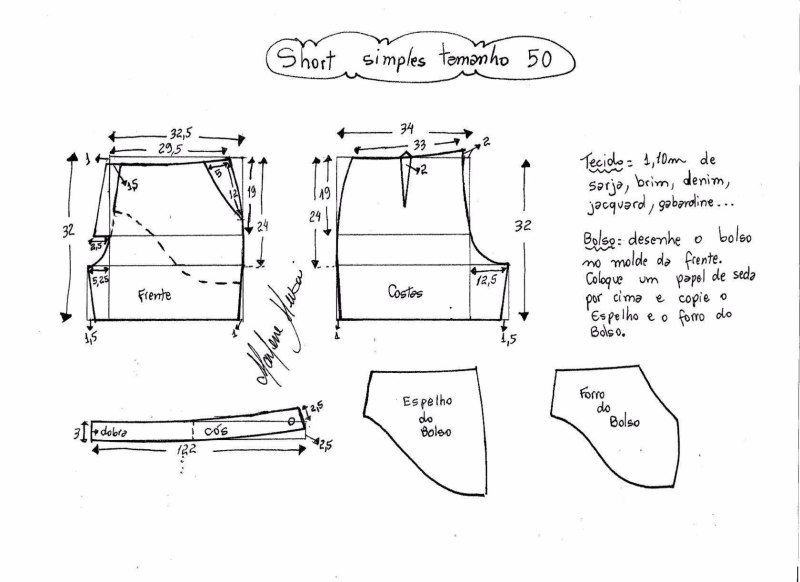 Short simples tamanho 50
32,5
29,5
1
1,5
5
12
19
24
32
3,5
5,25
Frente
1,5
1
34
33
2
2
19
24
32
12,5
Costas
1
1,5
Tecido: 1,10m de
sarja, brim, denim,
jacquard, gabardine...
Bolso: desenhe o bolso
no molde da frente.
Coloque um papel de seda
por cima e copie o
Espelho e o forro do
Bolso.
Marlene Mukai
3
dobra
cós
2,5
2,5
122
Espelho
do
Bolso
Forro
do
Bolso